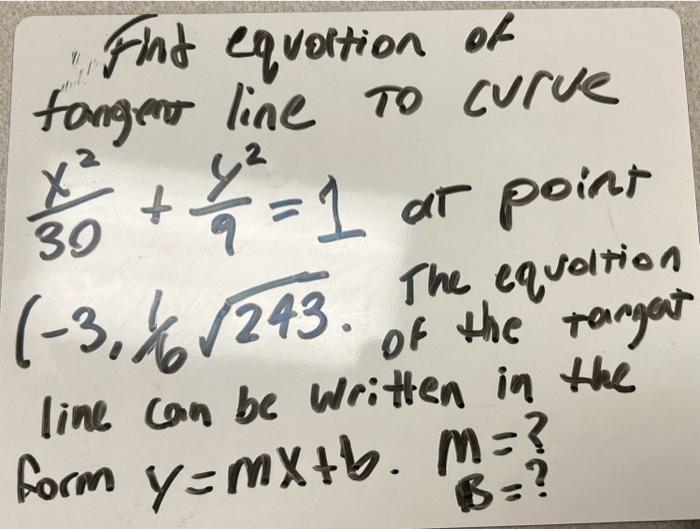 Find equation of
tangent line TO curve
x²/30 + y²/9 = 1 at point
(-3, 1/6 √243. The equation
of the tangat
line can be written in the
form y=mx+b. m=?
B=?